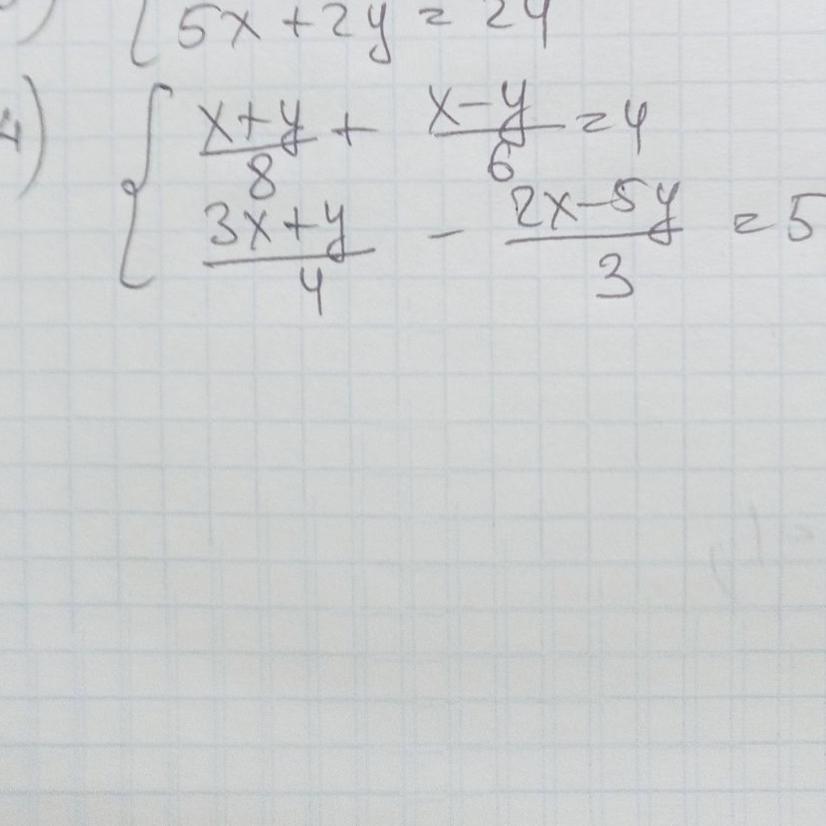 5x+2y=24
4) { (x+y)/8 + (x-y)/6 = 4
(3x+y)/4 - (2x-5y)/3 = 5